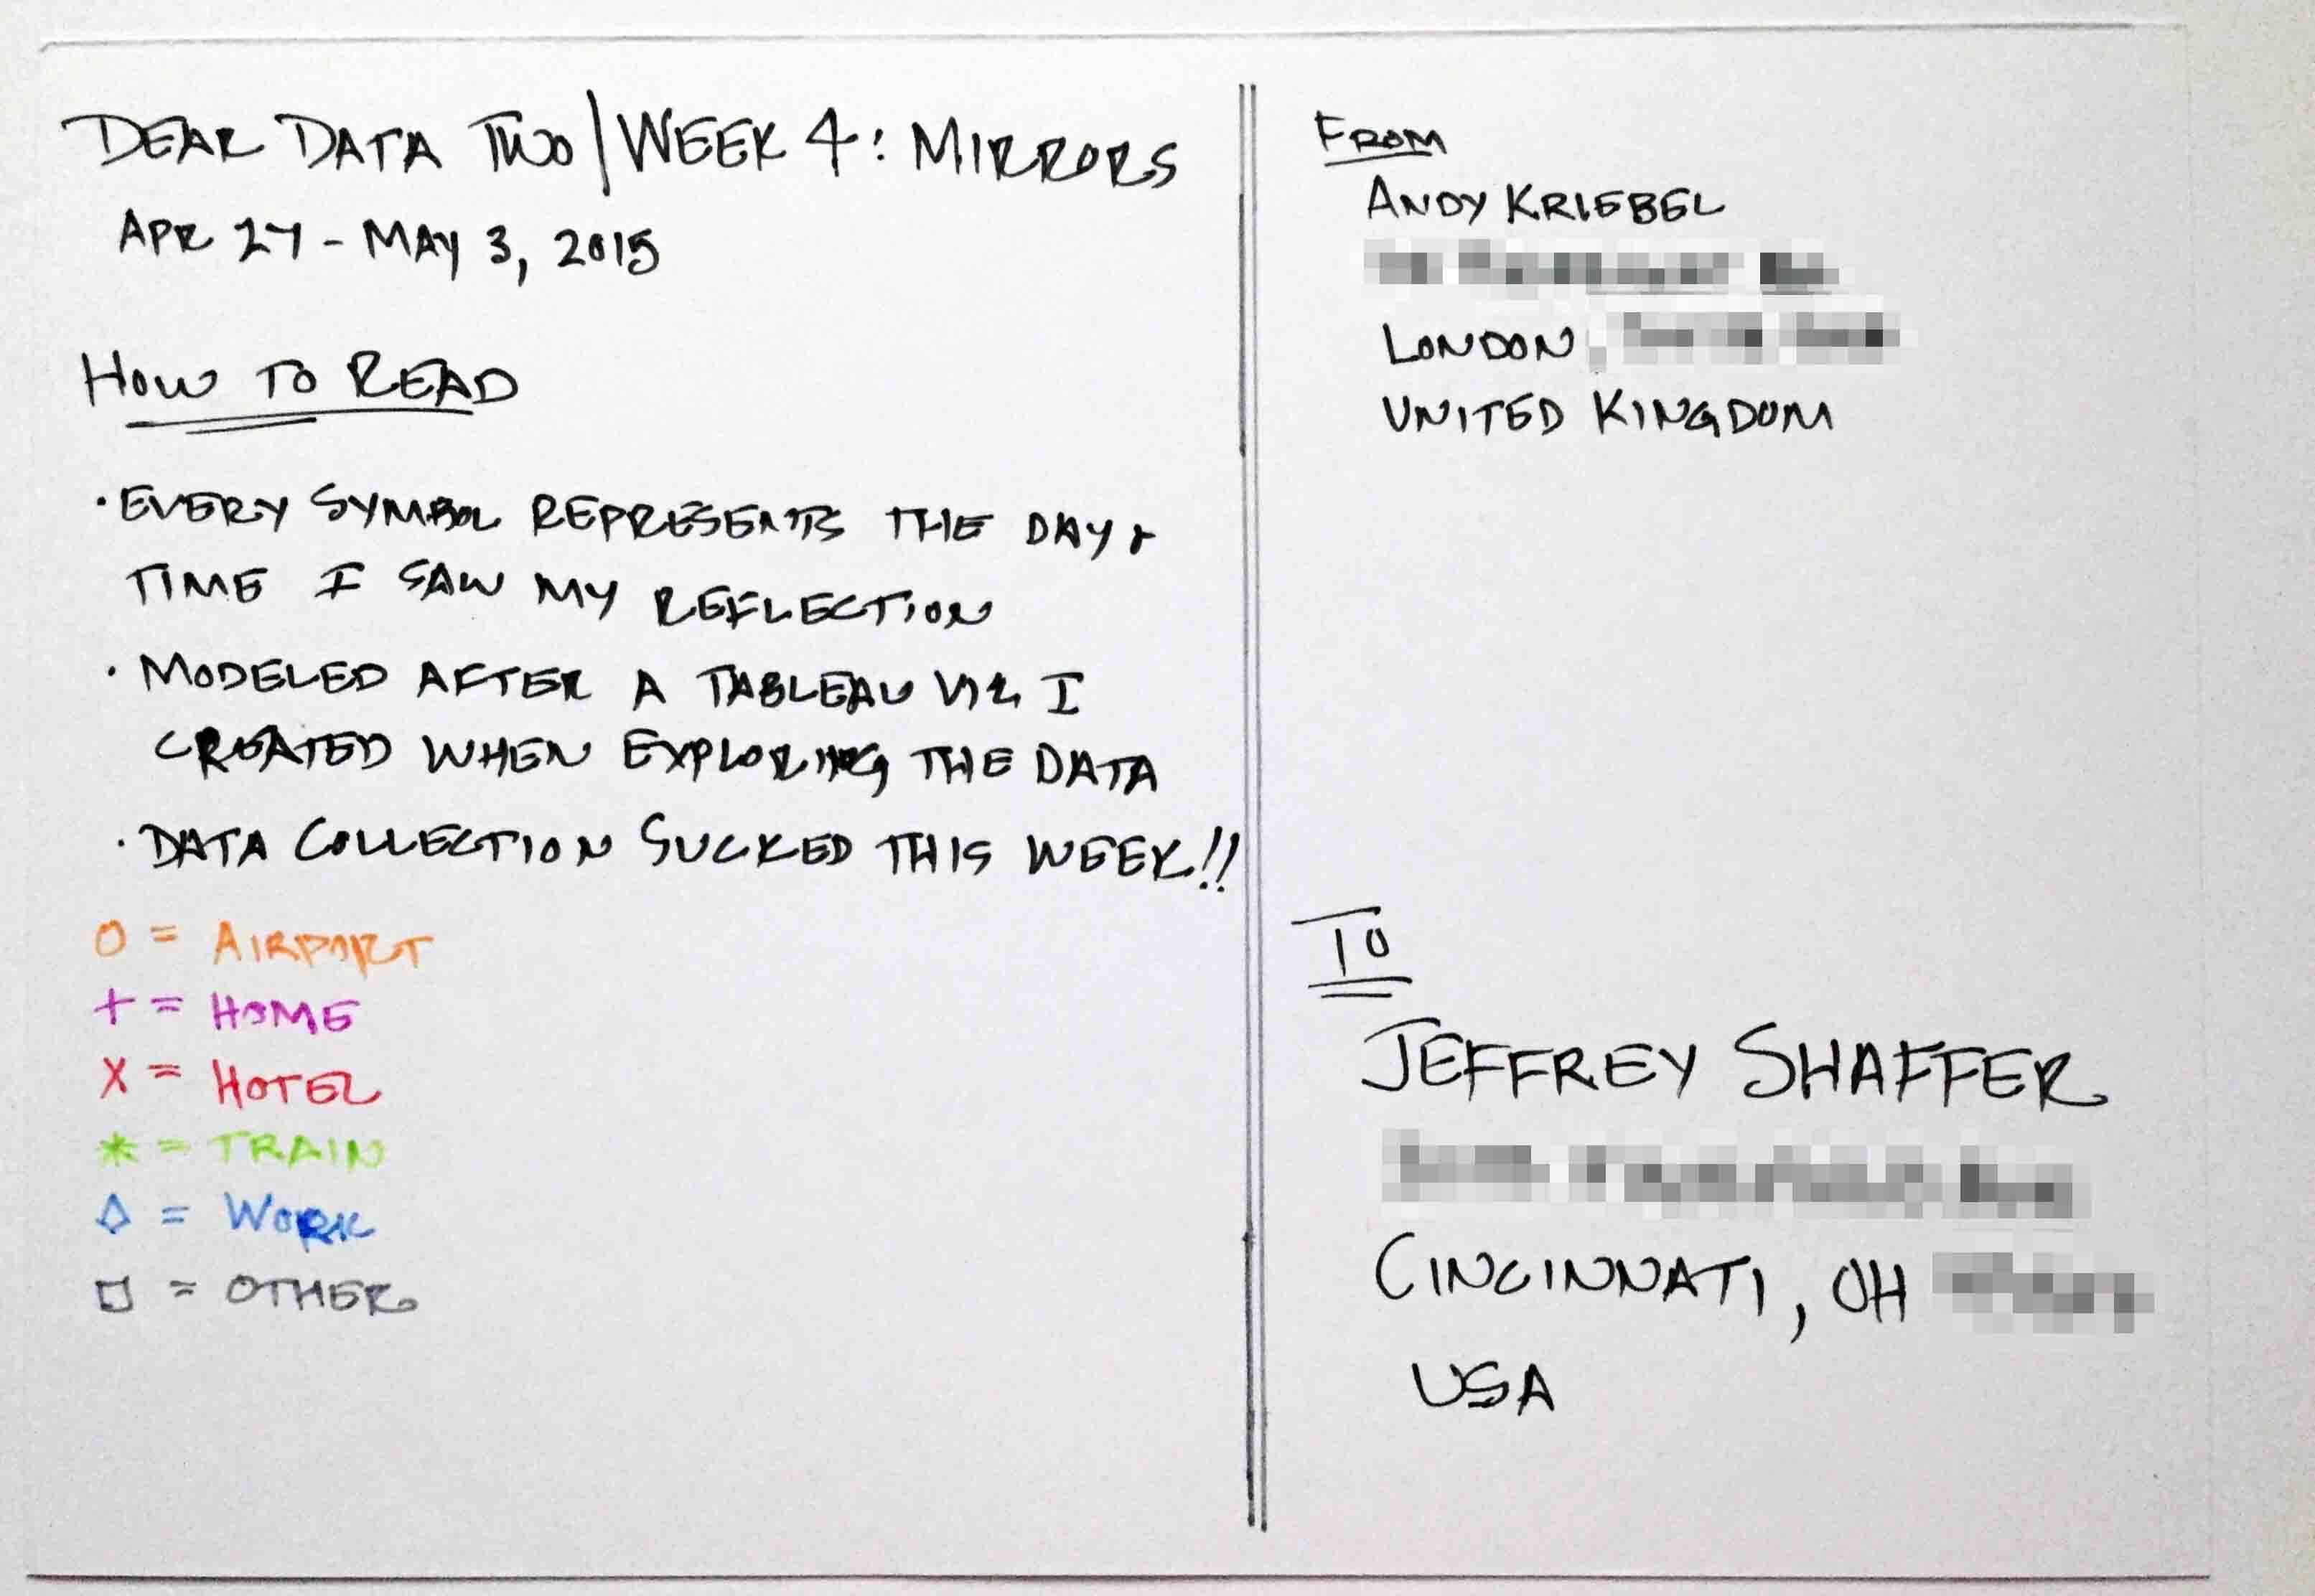 DEAR DATA TWO | WEEK 4: MIRRORS
APR 27 - MAY 3, 2015
HOW TO READ
· EVERY SYMBOL REPRESENTS THE DAY &
TIME I SAW MY REFLECTION
· MODELED AFTER A TABLEAU VIZ I
CREATED WHEN EXPLORING THE DATA
· DATA COLLECTION SUCKED THIS WEEK!!
O = AIRPORT
+ = HOME
X = HOTEL
* = TRAIN
◇ = WORK
□ = OTHER
FROM
ANDY KRIEBEL
LONDON,
UNITED KINGDOM
TO
JEFFREY SHAFFER
CINCINNATI, OH
USA